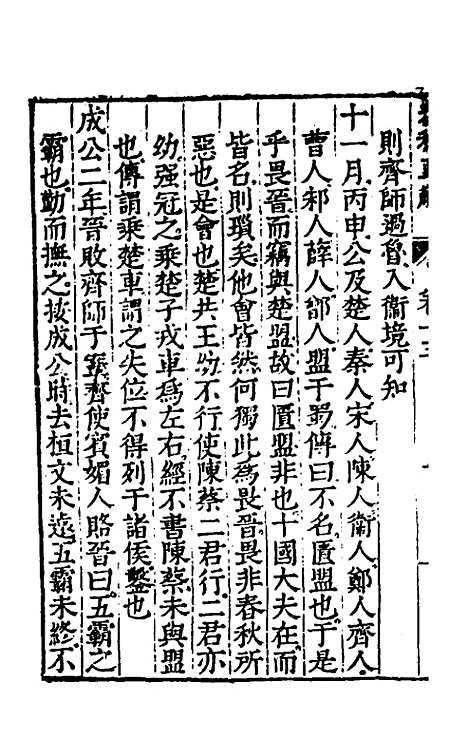 則齊師過魯入衞境可知
十一月丙申公及楚人秦人宋人陳人衞人鄭人齊人
曹人邾人薛人鄫人盟于蜀傳曰不名匱盟也于是
乎畏晉而竊與楚盟故曰匱盟非也十國大夫在而
皆名則瑣矣他會皆然何獨此為畏晉畏非春秋所
惡也是會也楚共王幼不行使陳蔡二君行二君亦
幼强冠之乘楚子戎車爲左右經不書陳蔡未與盟
也傳謂乘楚車謂之失位不得列于諸侯鑿也
成公二年晉敗齊師于鞌齊使賓媚人賂晉曰五霸之
霸也勤而撫之按成公時去桓文未遠五霸未終不